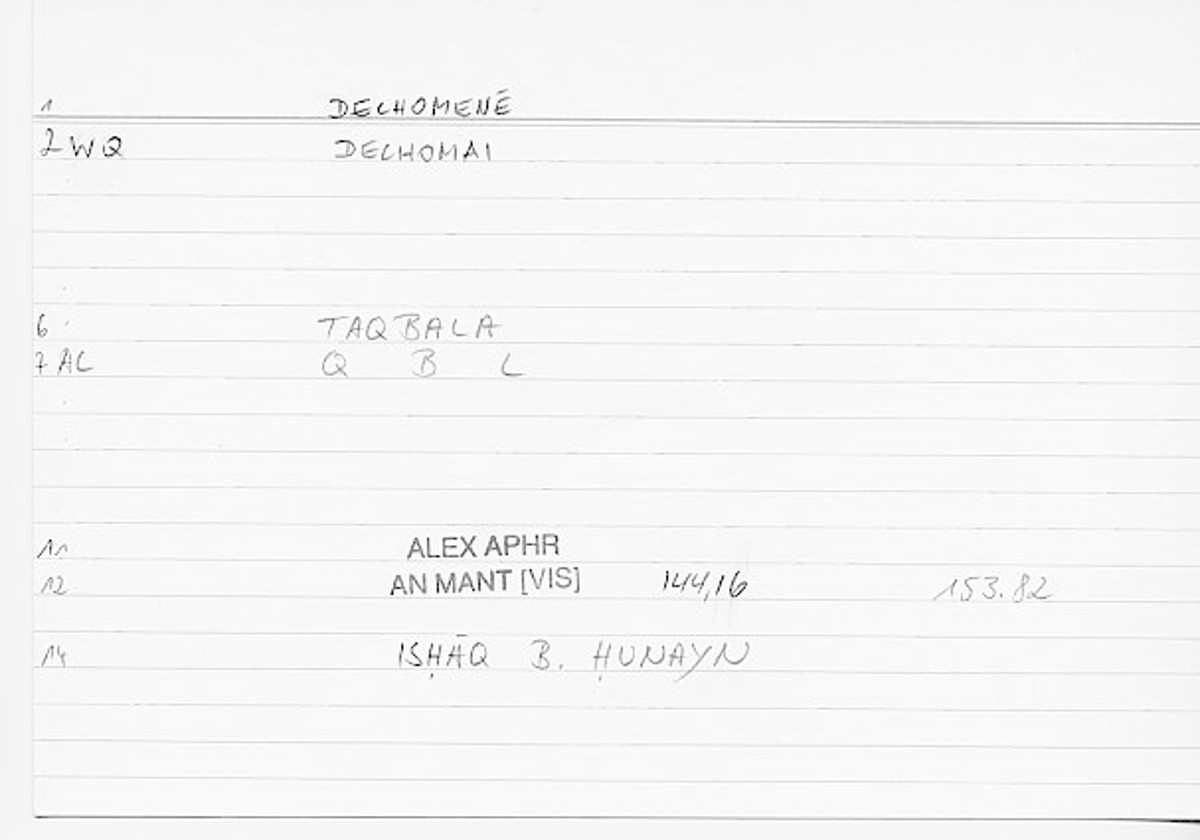 1 DECHOMENĒ
2 WQ DECHOMAI
6 TAQBALA
7 AL Q B L
11 ALEX APHR
12 AN MANT [VIS] 144,16 153.82
14 ISḤĀQ B. ḤUNAYN